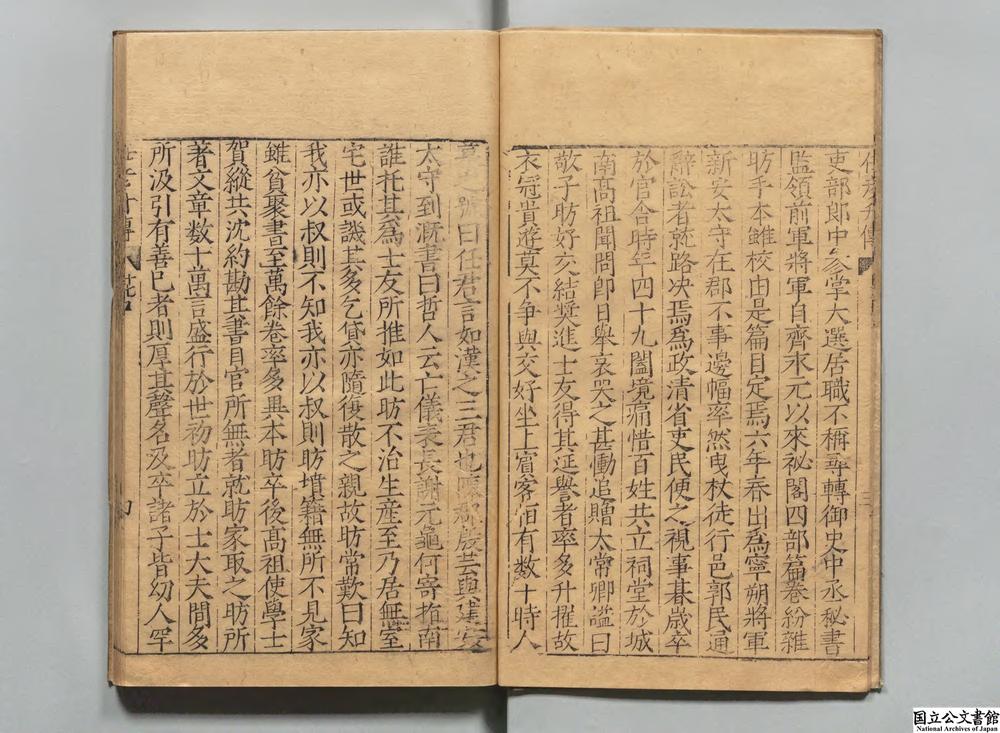 吏部郎中參掌大選居職不稱尋轉御史中丞秘書
監領前軍將軍自齊末元以來祕閣四部篇卷紛雜
昉手本雠校由是篇目定焉六年春出爲寧朔將軍
新安太守在郡不事邊幅率然曳杖徒行邑郭民通
辭訟者就路决焉爲政清省吏民便之視事朞歳卒
於官舍時年四十九闔境痛惜百姓共立祠堂於城
南髙祖聞問卽日舉哀哭之甚慟追贈太常卿謚曰
敬子昉好交結奨進士友得其延譽者率多升擢故
衣冠貴遊莫不争與交好坐上賓客恒有数十時人
慕之號曰任君言如漢之三君也陳郡殷芸與建安
太守到溉書曰哲人云亡儀表長謝元龜何寄指南
誰托其為士友所推如此昉不治生産至乃居無室
宅世或譏其多乞貸亦隨復散之親故昉常歎曰知
我亦以叔則不知我亦以叔則昉墳籍無所不見家
雖貧聚書至萬餘卷率多異本昉卒後髙祖使學士
賀縱共沈約勘其書目官所無者就昉家取之昉所
著文章数十萬言盛行於世初昉立於士大夫間多
所汲引有善已者則厚其聲名及卒諸子皆幼人罕
国立公文書館
National Archives of Japan